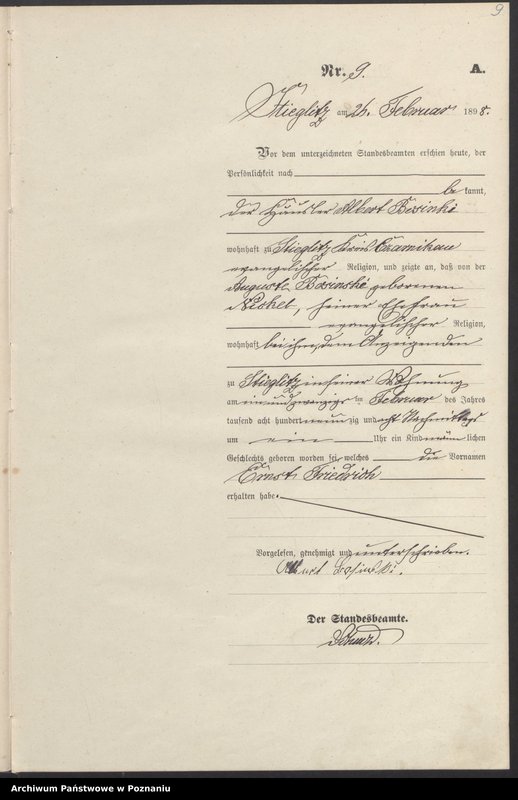 9
Nr. 9. A.
Stieglitz am 26. Februar 1898.
Vor dem unterzeichneten Standesbeamten erschien heute, der
Persönlichkeit nach
be kannt,
der Häusler Albert
wohnhaft zu Stieglitz Kreis Czarnikau
evangelischer Religion, und zeigte an, daß von der
Auguste geborenen
seiner Ehefrau
evangelischer Religion,
wohnhaft bei ihm, dem Anzeigenden
zu Stieglitz in seiner Wohnung
am einundzwanzigsten Februar des Jahres
tausend acht hundert neunzig und acht Nachmittags
um ein Uhr ein Kind männlichen
Geschlechts geboren worden sei, welches die Vornamen
Ernst Friedrich
erhalten habe.
Vorgelesen, genehmigt und unterschrieben.
Albert
Der Standesbeamte.
Archiwum Państwowe w Poznaniu